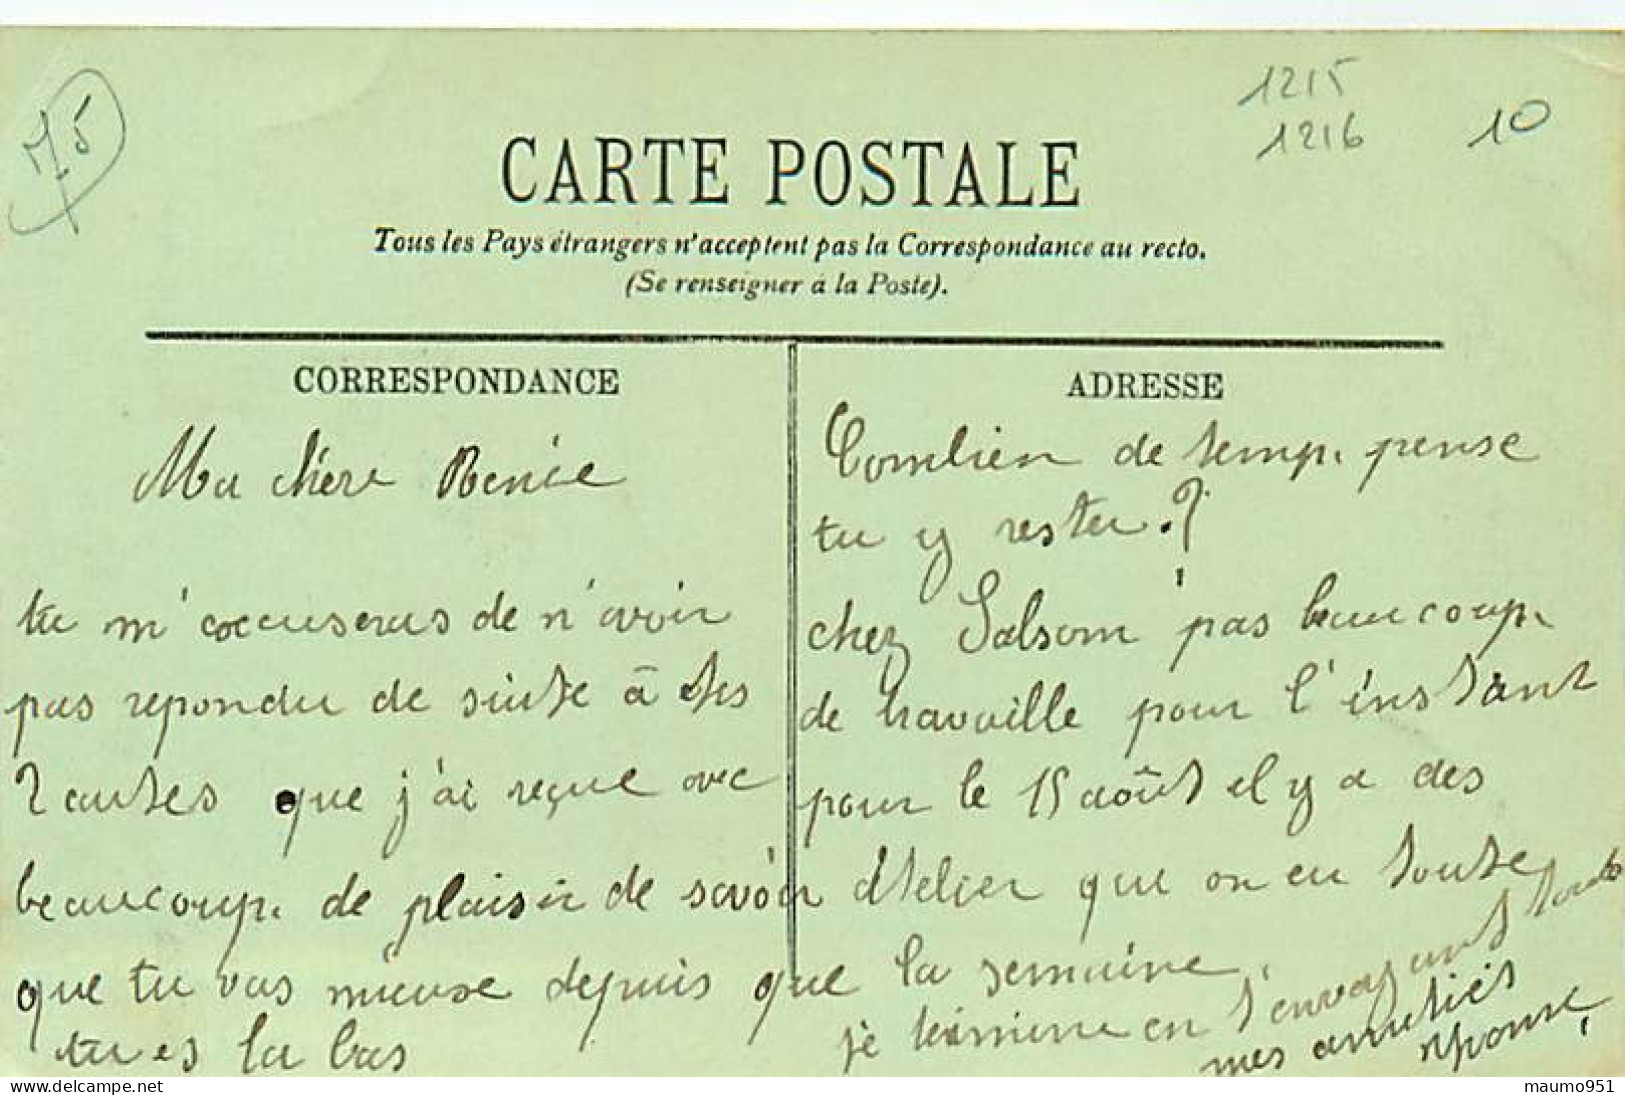 75
1215
1216
10
CARTE POSTALE
Tous les Pays étrangers n'acceptent pas la Correspondance au recto.
(Se renseigner à la Poste).
CORRESPONDANCE
Ma chère Renée
tu m'accuseras de n'avoir
pas repondu de suite à tes
2 cartes que j'ai reçue avec
beaucoup de plaisir de savoir
que tu vas mieuse depuis que
tu es la bas
ADRESSE
Combien de temp. pense
tu y rester?
chez Salsom pas beaucoup.
de travaille pour l'instant
pour le 15 août il y a des
atelier que on en toute
la semaine.
je termine en t'envoyant toute
mes amitiés
réponse.
maumo951